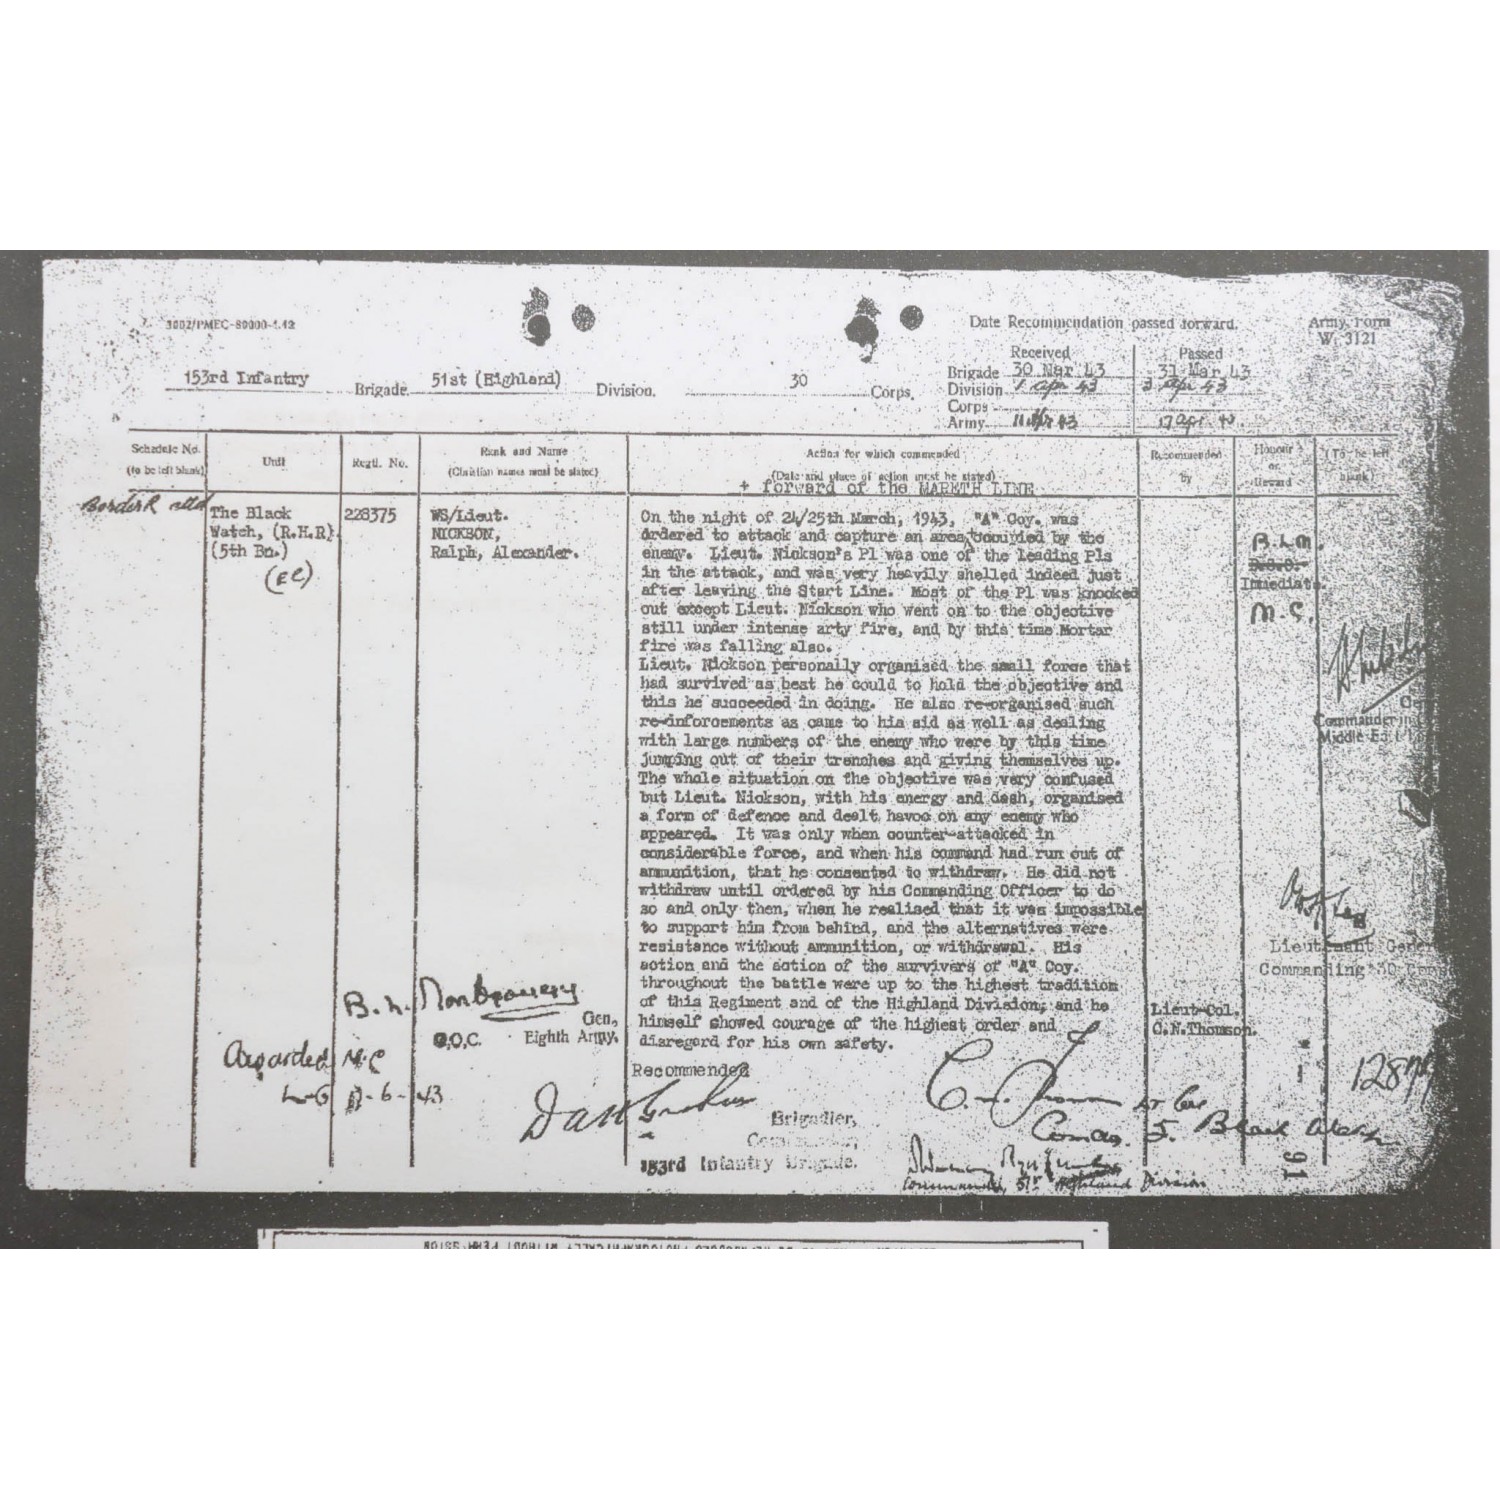 3002/PMEC-80000-4.42
Date Recommendation passed forward.
Army Form
W. 3121
Received
Passed
153rd Infantry Brigade 51st (Highland) Division. 30 Corps.
Brigade 30 Mar 43 31 Mar 43
Division 1 Apr 43 3 Apr 43
Corps
Army 17 Apr 43
Schedule No.
(to be left blank)
Unit
Regtl. No.
Rank and Name
(Christian names must be stated)
Action for which commended
(Date and place of action must be stated)
Recommended
by
Honour
or
Reward
(To be left
blank)
+ forward of the MARETH LINE
Border R attd
The Black
Watch, (R.H.R)
(5th Bn.)
(EC)
228375
WS/Lieut.
NICKSON,
Ralph, Alexander.
On the night of 24/25th March, 1943, "A" Coy. was
ordered to attack and capture an area + occupied by the
enemy. Lieut. Nickson's Pl was one of the leading Pls
in the attack, and was very heavily shelled indeed just
after leaving the Start Line. Most of the Pl was knocked
out except Lieut. Nickson who went on to the objective
still under intense arty fire, and by this time Mortar
fire was falling also.
Lieut. Nickson personally organised the small force that
had survived as best he could to hold the objective and
this he succeeded in doing. He also re-organised such
re-inforcements as came to his aid as well as dealing
with large numbers of the enemy who were by this time
jumping out of their trenches and giving themselves up.
The whole situation on the objective was very confused
but Lieut. Nickson, with his energy and dash, organised
a form of defence and dealt havoc on any enemy who
appeared. It was only when counter-attacked in
considerable force, and when his command had run out of
ammunition, that he consented to withdraw. He did not
withdraw until ordered by his Commanding Officer to do
so and only then, when he realised that it was impossible
to support him from behind, and the alternatives were
resistance without ammunition, or withdrawal. His
action and the action of the survivers of "A" Coy.
throughout the battle were up to the highest tradition
of this Regiment and of the Highland Division, and he
himself showed courage of the highest order and
disregard for his own safety.
Recommended
Lieut-Col.
C.N.Thomson.
B.L.M.
D.S.O.
Immediate.
M.C.
Commander in
Middle East
Lieutenant Gener
Commanding 30 Corps
B. L. Montgomery
Gen,
G.O.C. Eighth Army.
Awarded M.C
L-G -6-43
Brigadier,
Commander,
153rd Infantry Brigade.
Lt Col
Comdg. 5. Black Watch
Commander, 51st Highland Division
91